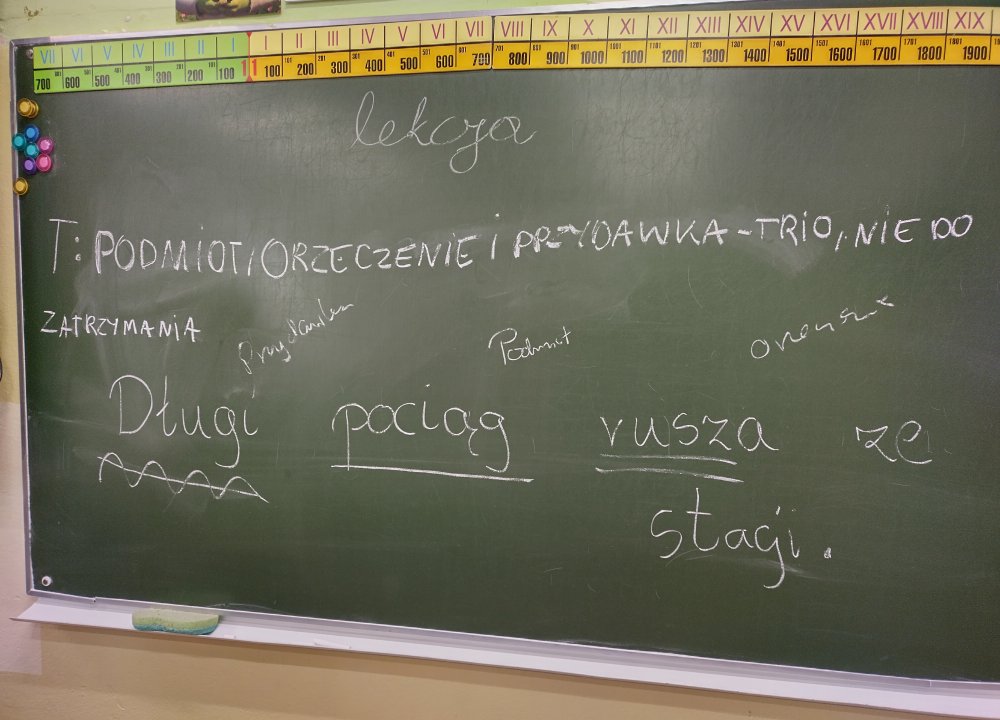 VII VI V IV III II I I II III IV V VI VII VIII IX X XI XII XIII XIV XV XVI XVII XVIII XIX
700 600 500 400 300 200 100 1 1 100 200 300 400 500 600 700 800 900 1000 1100 1200 1300 1400 1500 1600 1700 1800 1900
lekcja
T: PODMIOT, ORZECZENIE I PRZYDAWKA - TRIO, NIE DO
ZATRZYMANIA
Przydawka Podmiot
Długi pociąg rusza ze
stacji.